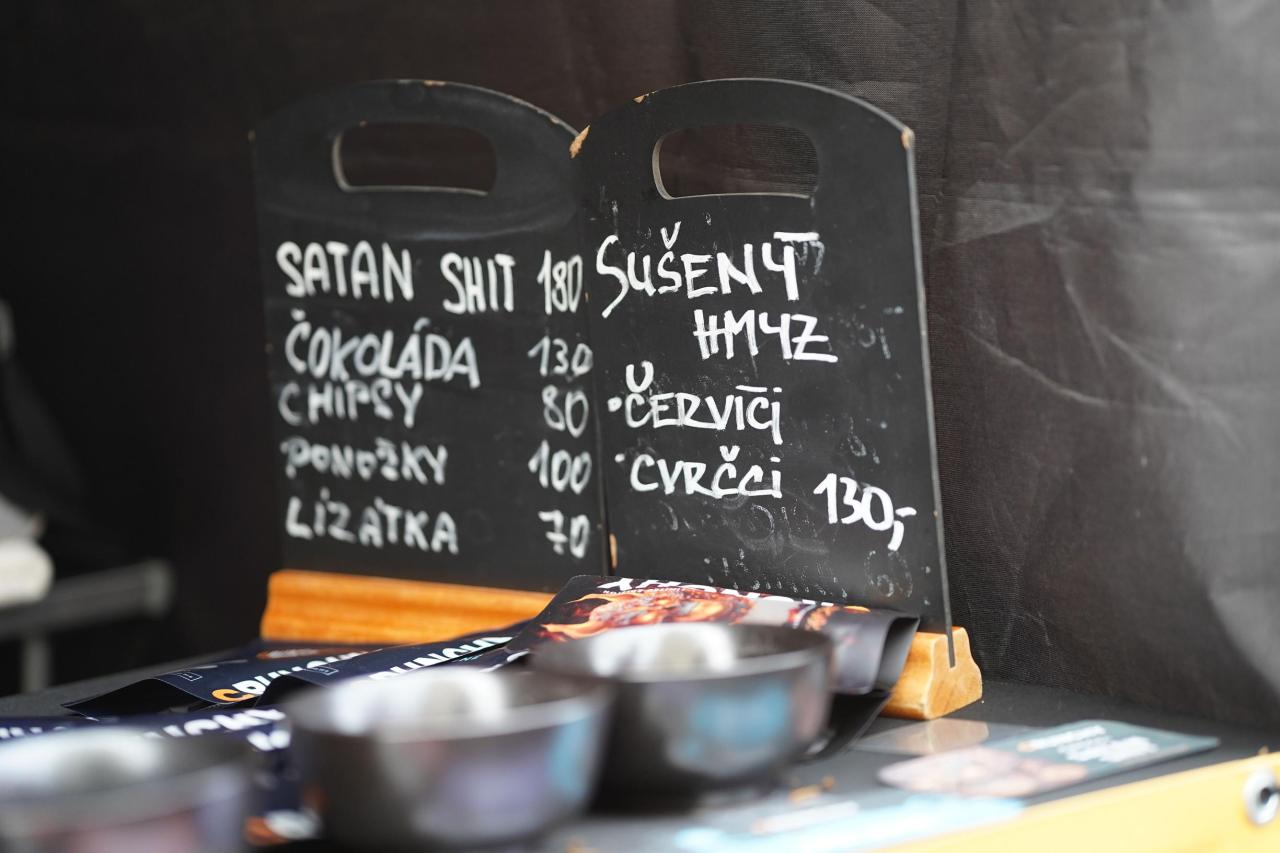 SATAN SHIT 180
ČOKOLÁDA 130
CHIPSY 80
PONOŽKY 100
LÍZÁTKA 70
SUŠENÝ
HMYZ
•ČERVÍCI
•CVRČCI
130,-